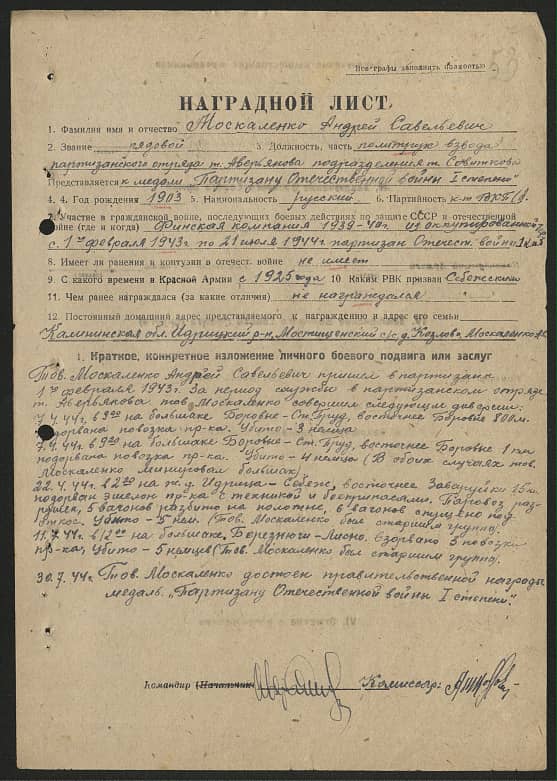 53
Все графы заполнить полностью
НАГРАДНОЙ ЛИСТ
1. Фамилия имя и отчество Москаленко Андрей Савельевич
2. Звание рядовой 3. Должность, часть политрук взвода
партизанского отряда т. Аверьянова подразделения т.
Представляется к медали "Партизану Отечественной войны I степени"
4. 4. Год рождения 1903 5. Национальность русский 6. Партийность к-т ВКП(б)
7. Участие в гражданской войне, последующих боевых действиях по защите СССР и отечественной
войне (где и когда) Финская компания 1939-40г.
с 1го февраля 1943г по 21 июля 1944г партизан Отечест. войны
8. Имеет ли ранения и контузии в отечест. войне не имеет
9 С какого времени в Красной Армии с 1925 года 10. Каким РВК призван Себежским
11. Чем ранее награждался (за какие отличия) не награждался
12. Постоянный домашний адрес представляемого к награждению и адрес его семьи
Калининская обл. Идрицкий р-н, Мостищенский с/с д. Козлово Москаленко А.С.
1. Краткое, конкретное изложение личного боевого подвига или заслуг
Тов. Москаленко Андрей Савельевич пришел в партизаны
1го февраля 1943г. За период службы в партизанском отряде
т. Аверьянова тов. Москаленко совершил следующие диверсии:
7.4.44г в 3 00 на большаке Боровые-Ст. Труд, восточнее Боровые 800 м.
подорвана повозка пр-ка. Убито-3 немца
7.4.44г в 9 00 на большаке Боровые-Ст. Труд, восточнее Боровые 1 км
подорвана повозка пр-ка. Убито-4 немца (В обоих случаях тов.
Москаленко минировал большак)
22.4.44г в 2 00 на ж.д. Идрица-Себеж, восточнее Заваруйки 1,5 км.
подорван эшелон пр-ка с техникой и боеприпасами. Паровоз раз-
рушен, 5 вагонов разбито на полотне, 6 вагонов спущено под
откос. Убито-5 нем. (Тов. Москаленко был старшим группы)
11.7.44г в 12 00 на большаке, Березнюги-Лисно. Взорвано 3 повозки
пр-ка, Убито-5 немцев (Тов. Москаленко был старшим группы.
30.7.44г Тов. Москаленко достоен правительственной награды
медаль "Партизану Отечественной войны I степени".
Командир (Начальник) Комиссар: